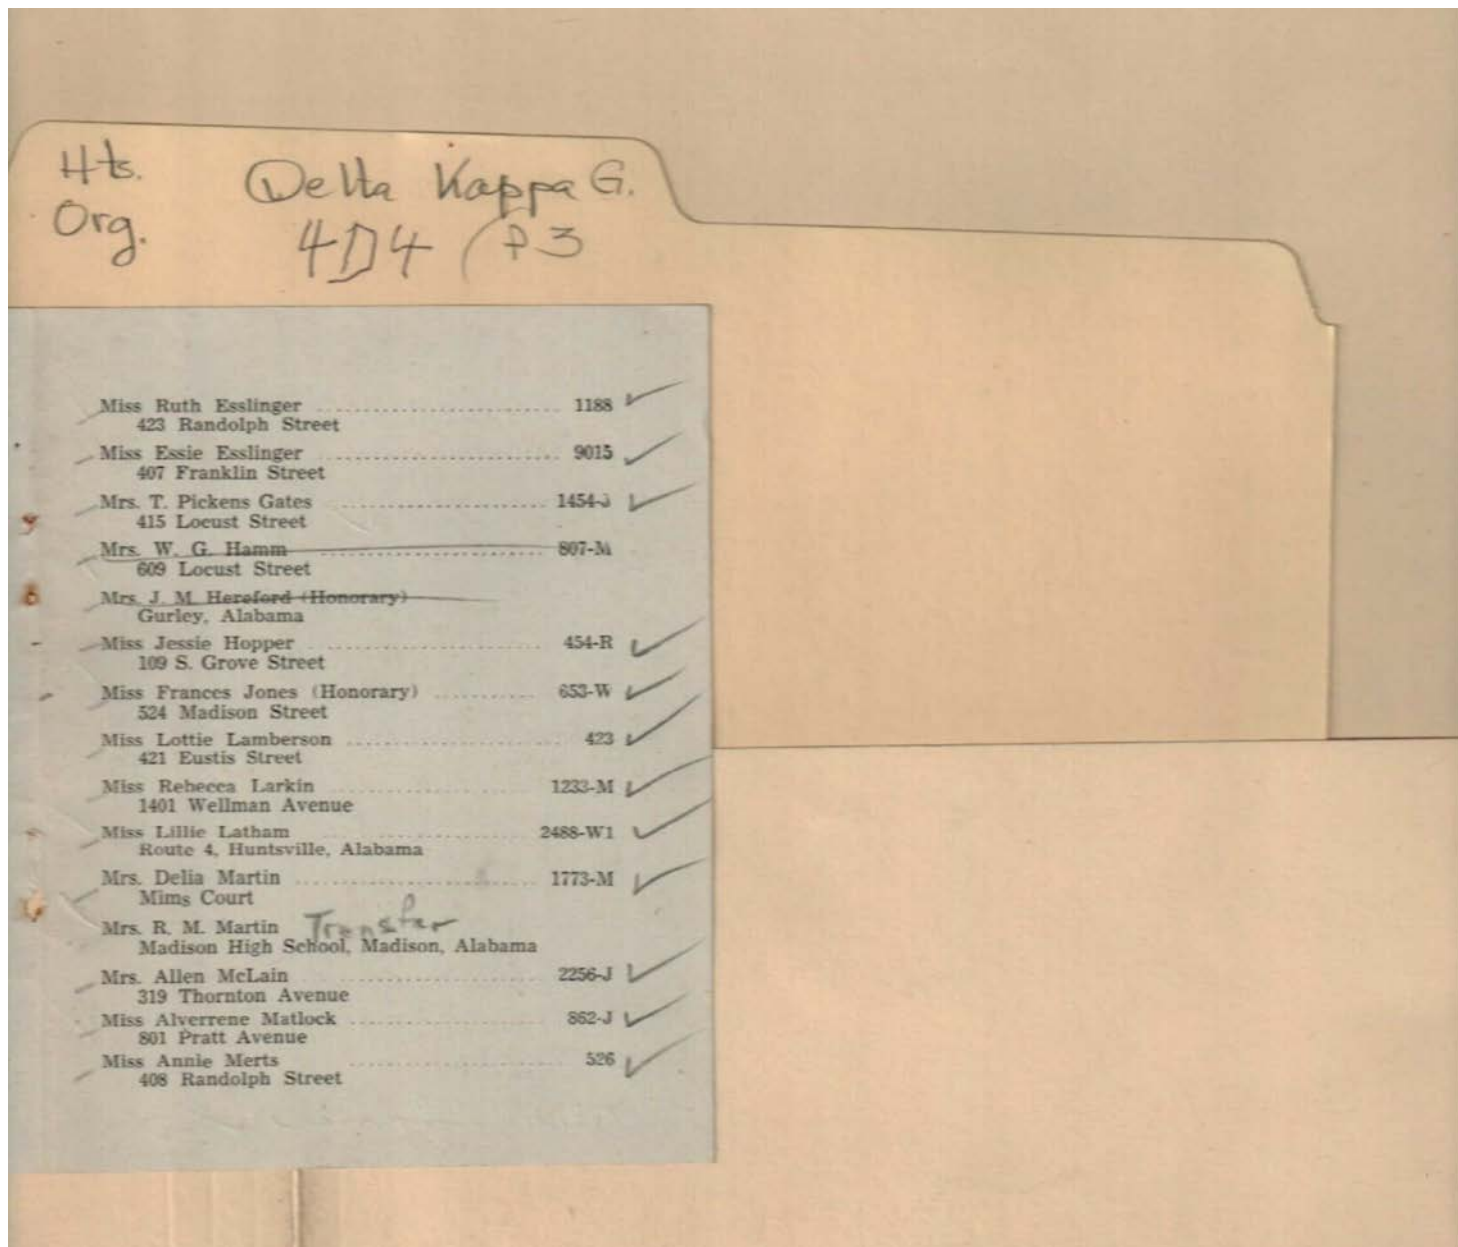 Hts. Delta Kappa G.
Org. 4D4 (P3
Miss Ruth Esslinger .......... 1188
423 Randolph Street
Miss Essie Esslinger .......... 9015
407 Franklin Street
Mrs. T. Pickens Gates .......... 1454-J
415 Locust Street
Mrs. W. G. Hamm .......... 807-M
609 Locust Street
Mrs. J. M. Hereford (Honorary)
Gurley, Alabama
Miss Jessie Hopper .......... 454-R
109 S. Grove Street
Miss Frances Jones (Honorary) .......... 653-W
524 Madison Street
Miss Lottie Lamberson .......... 423
421 Eustis Street
Miss Rebecca Larkin .......... 1233-M
1401 Wellman Avenue
Miss Lillie Latham .......... 2488-W1
Route 4, Huntsville, Alabama
Mrs. Delia Martin .......... 1773-M
Mims Court
Mrs. R. M. Martin Transfer
Madison High School, Madison, Alabama
Mrs. Allen McLain .......... 2256-J
319 Thornton Avenue
Miss Alverrene Matlock .......... 862-J
801 Pratt Avenue
Miss Annie Merts .......... 526
408 Randolph Street